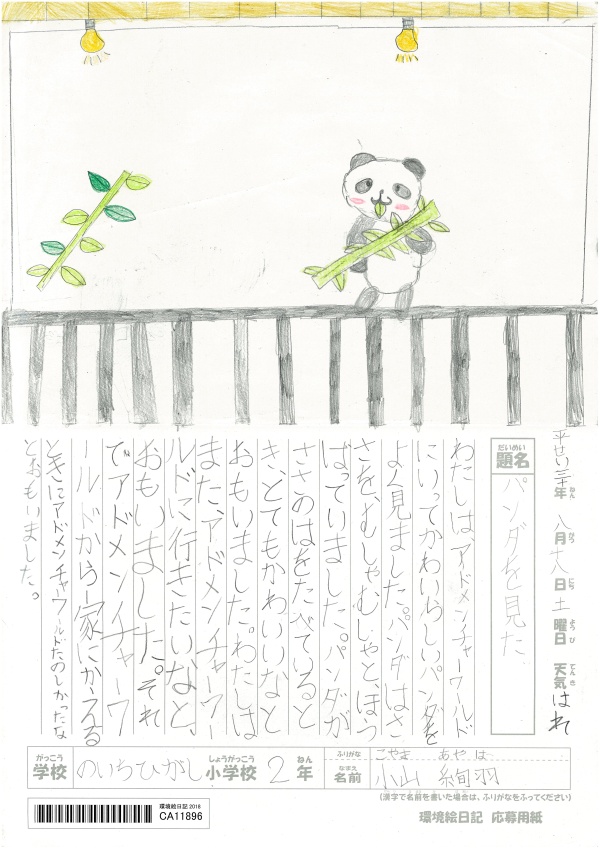 平せい三十年 八月十八日 土曜日 天気はれ
ねん がつ にち ようび てんき
だいめい
題名 パンダを見た
わたしは、アドメンチャーワールド
にいってかわいらしいパンダを
よく見ました。パンダはさ
さを、むしゃむしゃと、ほう
ばっていました。パンダが
ささのはをたべていると
き、とてもかわいいなと
おもいました。わたしは
また、アドメンイチャーワー
ルドに行きたいなと、
おもいました。それ
で、アドメンイチャーワ
ールドから家にかえる
ときにアドメンチャーワールドたのしかったな
とおもいました。
がっこう しょうがっこう ねん
学校 のいちひがし小学校 2年
ふりがな こやま あや は
なまえ
名前 小山 絢羽
(漢字で名前を書いた場合は、ふりがなをふってください)
環境絵日記 2018
CA11896
環境絵日記 応募用紙